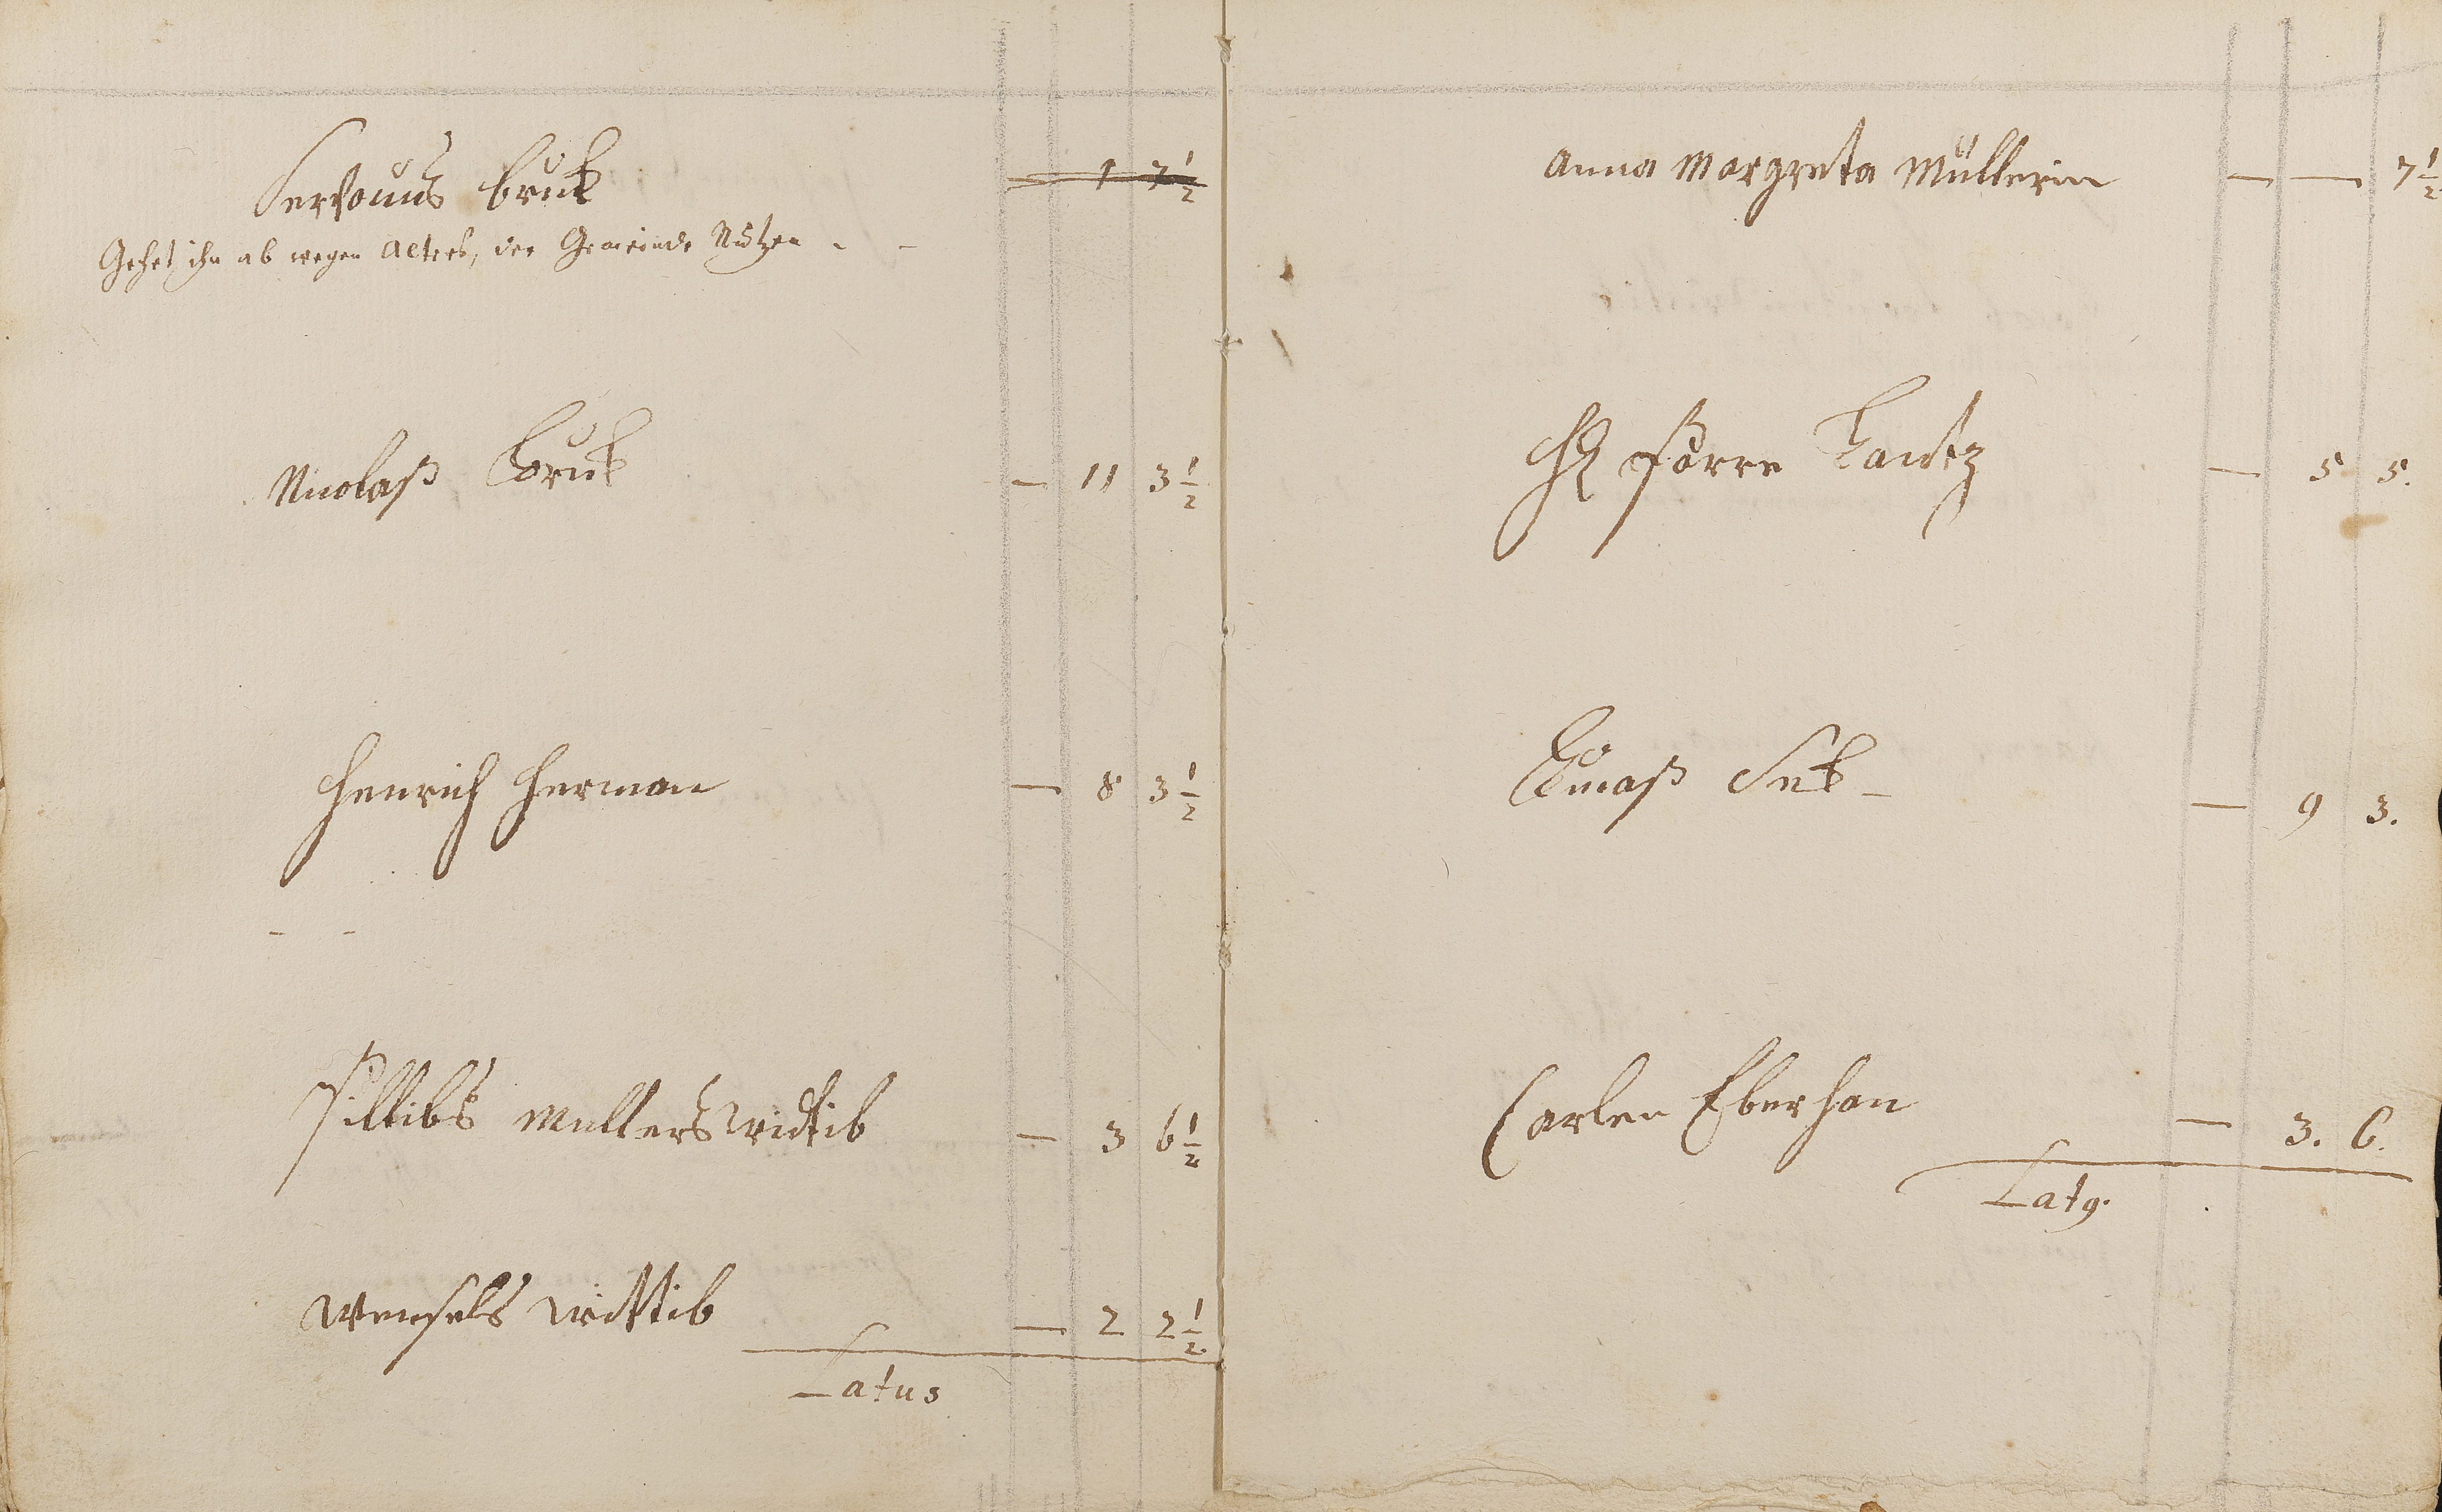 Servatius bruck — 1 7 1/2
Gehet ihn ab wegen Alters, der Gemeinde Nutzen - -
Nicolaß Bruck — 11 3 1/2
Henrich Herman — 8 3 1/2
Pillibs Mullers Widtib — 3 6 1/2
Wensels Widttib — 2 2 1/2
Latus
Anna Margreta Müllerin — — 7 1/2
H pfarre Lautz — 5 5.
— 9 3.
Carlen Eberhan — 3. 6.
Latg.